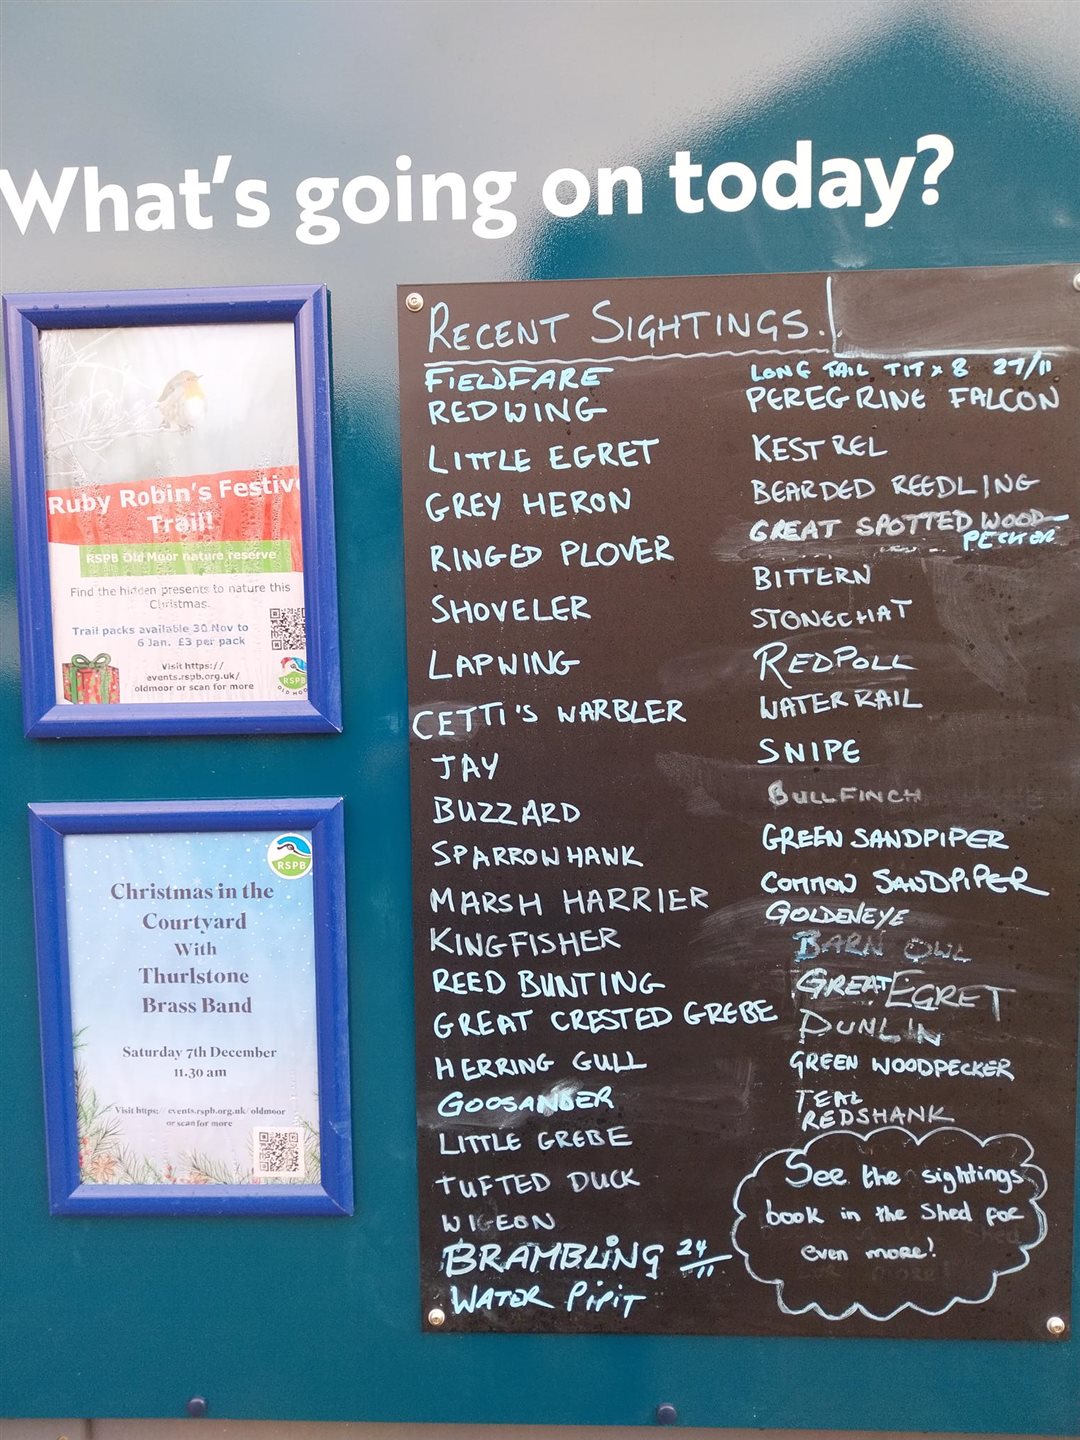 What's going on today?
Ruby Robin's Festiv
Trail!
RSPB Old Moor nature reserve
Find the hidden presents to nature this
Christmas.
Trail packs available 30 Nov to
6 Jan. £3 per pack
Visit https://
events.rspb.org.uk/
oldmoor or scan for more
RSPB
OLD MOO
RSPB
Christmas in the
Courtyard
With
Thurlstone
Brass Band
Saturday 7th December
11.30 am
Visit https://events.rspb.org.uk/oldmoor
or scan for more
RECENT SIGHTINGS.
FIELDFARE
REDWING
LITTLE EGRET
GREY HERON
RINGED PLOVER
SHOVELER
LAPWING
CETTI'S WARBLER
JAY
BUZZARD
SPARROWHAWK
MARSH HARRIER
KINGFISHER
REED BUNTING
GREAT CRESTED GREBE
HERRING GULL
GOOSANDER
LITTLE GREBE
TUFTED DUCK
WIGEON
BRAMBLING 24/11
WATER PIPIT
LONG TAIL TIT x 8 27/11
PEREGRINE FALCON
KESTREL
BEARDED REEDLING
GREAT SPOTTED WOOD-
PECKER
BITTERN
STONECHAT
REDPOLL
WATER RAIL
SNIPE
BULLFINCH
GREEN SANDPIPER
COMMON SANDPIPER
GOLDENEYE
BARN OWL
GREAT EGRET
DUNLIN
GREEN WOODPECKER
TEAL
REDSHANK
See the sightings
book in the shed for
even more!